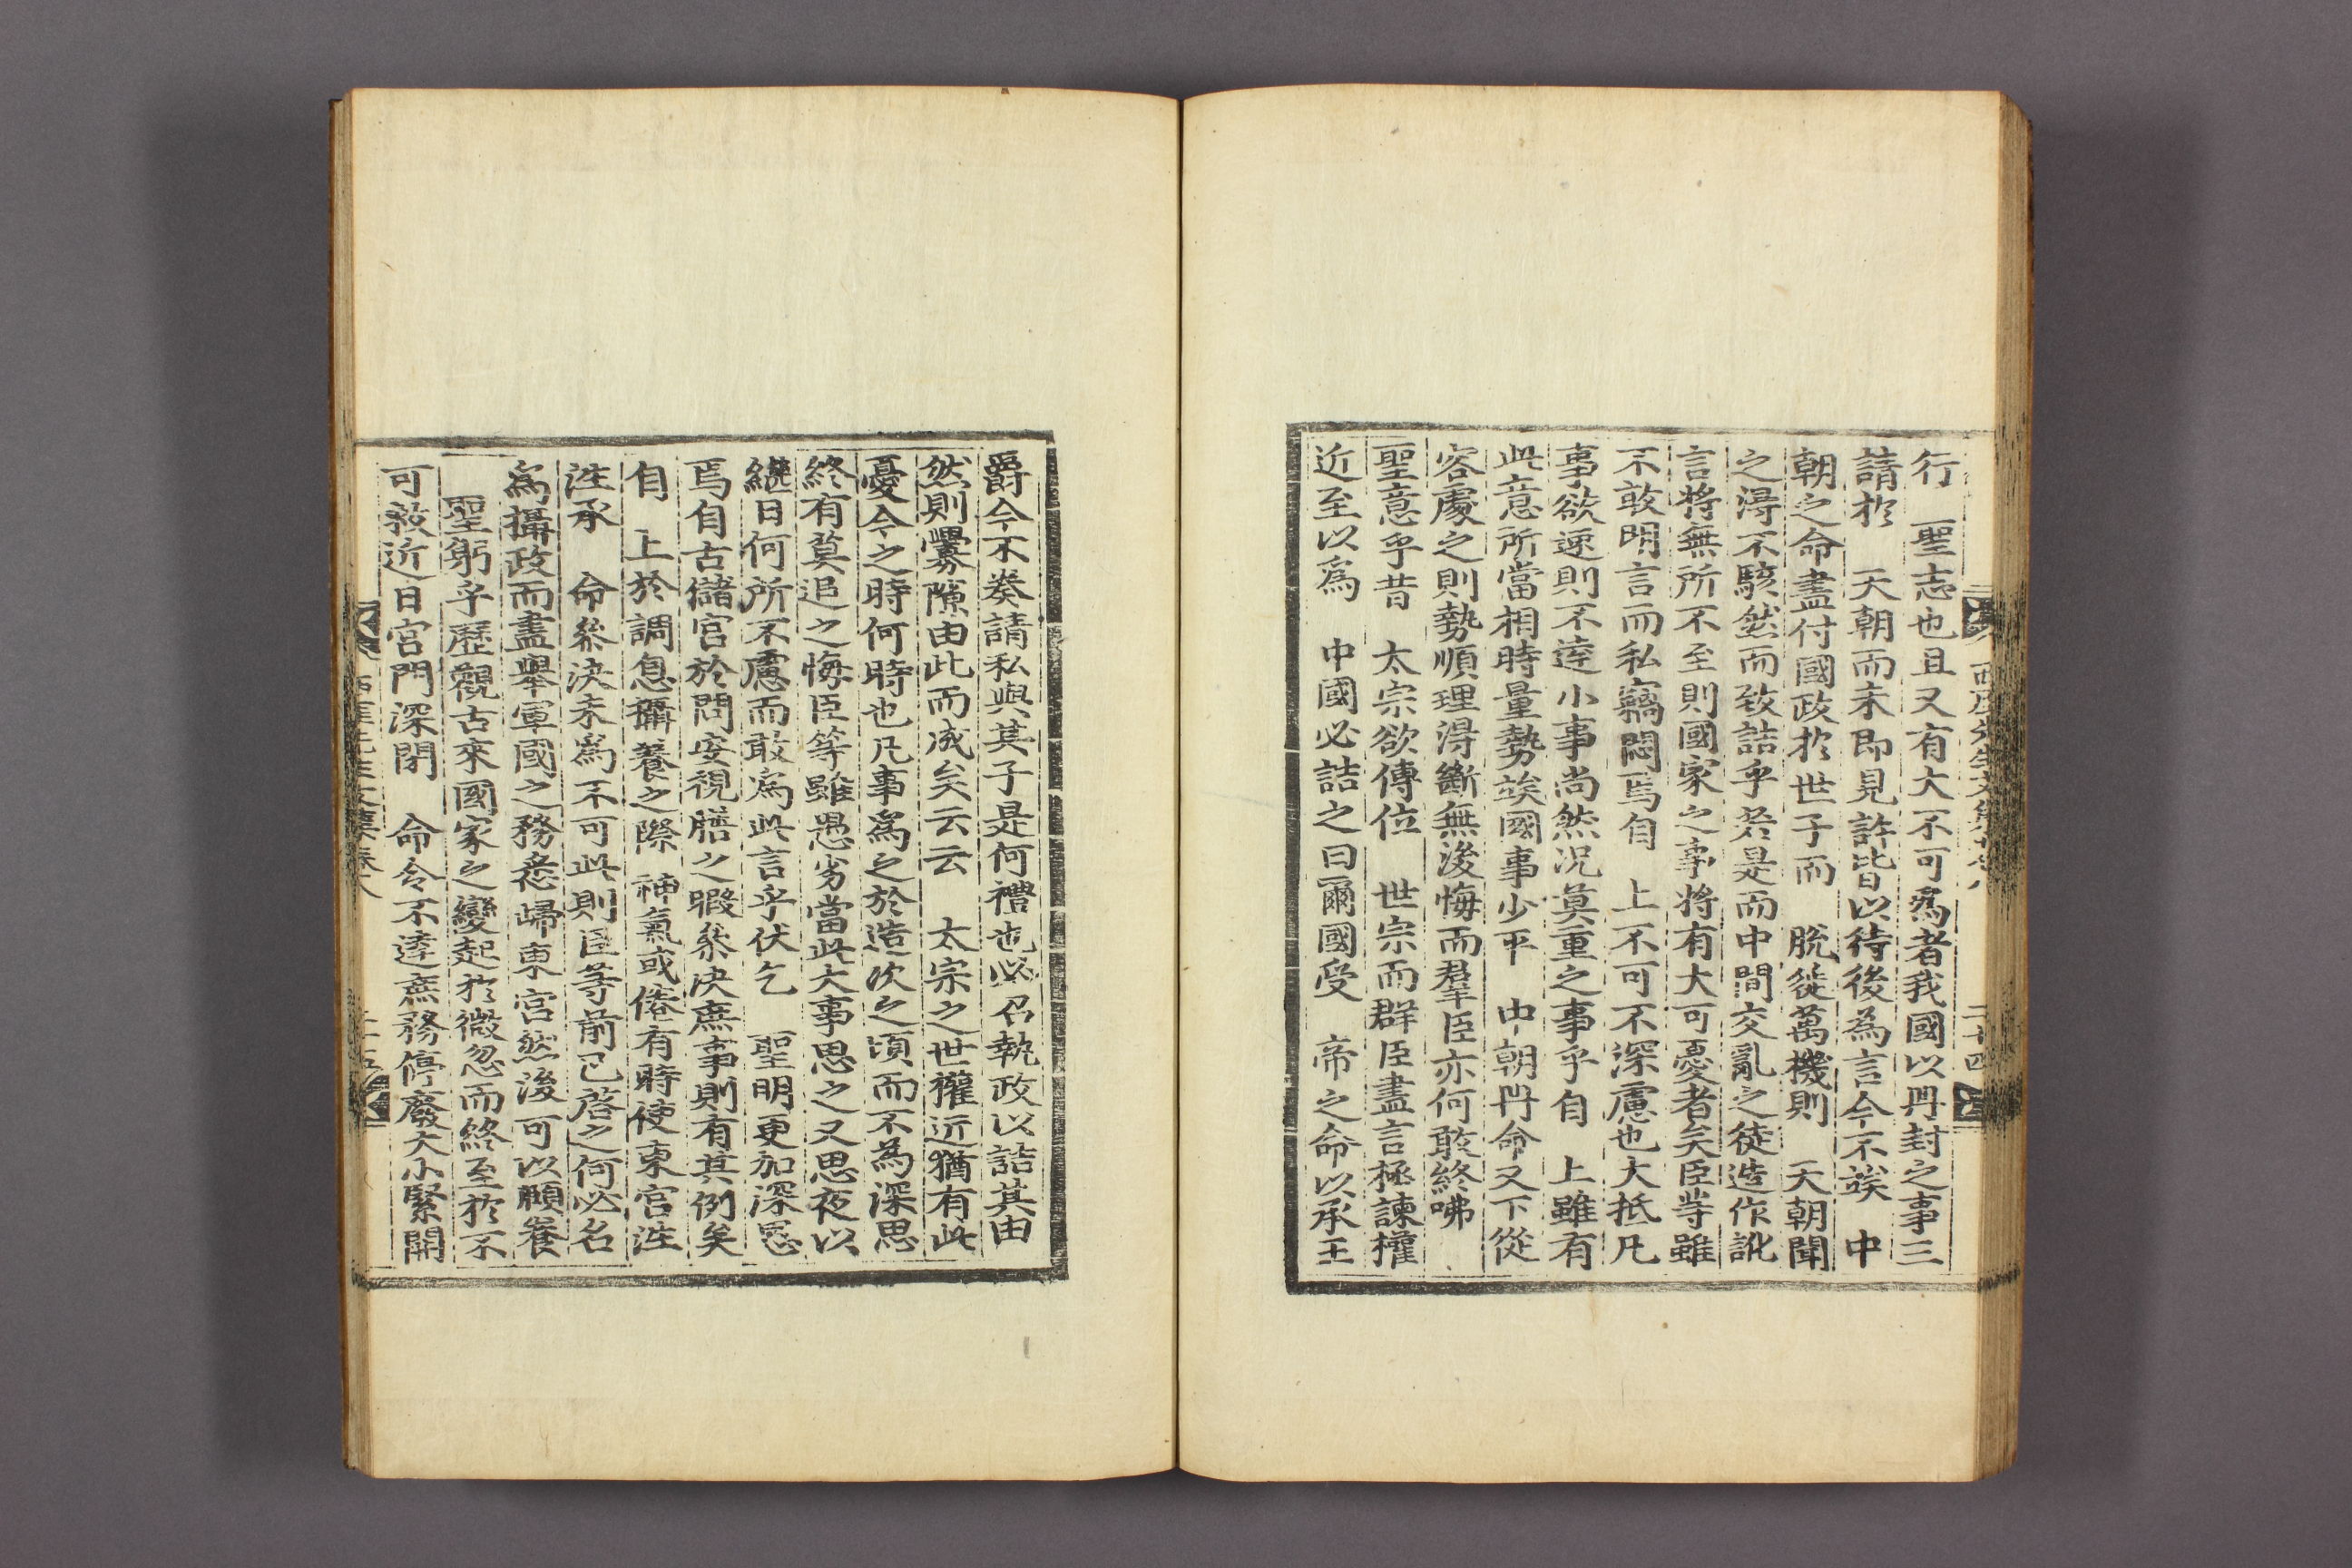 西厓先生文集卷八
二十四
行 聖志也且又有大不可爲者我國以冊封之事三
請於 天朝而未即見許皆以待後為言今不竢 中
朝之命盡付國政於世子而 脫屣萬機則 天朝聞
之得不駭然而致詰乎若是而中間交亂之徒造作訛
言將無所不至則國家之事將有大可憂者矣臣等雖
不敢明言而私竊悶焉自 上不可不深慮也大抵凡
事欲速則不達小事尚然況莫重之事乎自 上雖有
此意所當相時量勢竢國事少平 中朝冊命又下從
容處之則勢順理得斷無後悔而羣臣亦何敢終咈
聖意乎昔 太宗欲傳位 世宗而群臣盡言極諫權
近至以爲 中國必詰之曰爾國受 帝之命以承王
爵今不奏請私與其子是何禮也必召執政以詰其由
然則釁隙由此而成矣云云 太宗之世權近猶有此
憂今之時何時也凡事爲之於造次之頃而不為深思
終有莫追之悔臣等雖愚劣當此大事思之又思夜以
繼日何所不慮而敢爲此言乎伏乞 聖明更加深思
焉自古儲宮於問安視膳之暇叅決庶事則有其例矣
自 上於調息攝養之際 神氣或倦有時使東宮往
往承 命叅決未爲不可此則臣等前已啓之何必名
爲攝政而盡擧軍國之務悉歸東宮然後可以頤養
聖躬乎歷觀古來國家之變起於微忽而終至於不
可救近日宮門深閉 命令不達庶務停廢大小緊關
西厓先生文集卷八
二十五